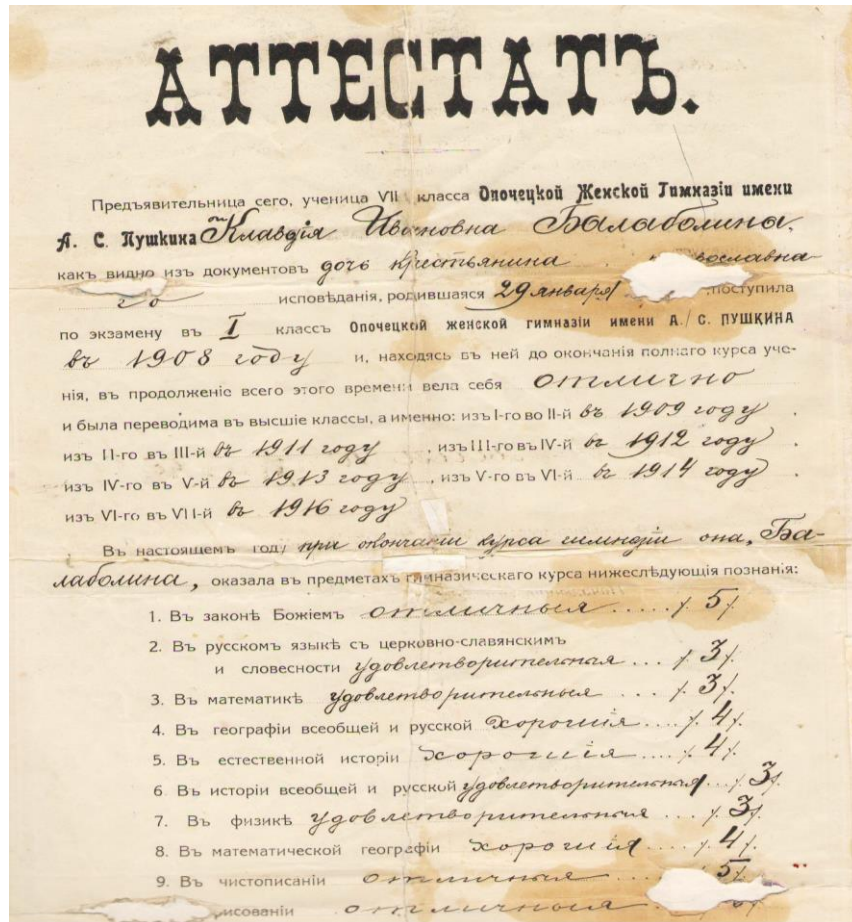 АТТЕСТАТЪ.
Предъявительница сего, ученица VII класса Опочецкой Женской Гимназіи имени
А. С. Пушкина Клавдія Ивановна Балаболина,
какъ видно изъ документовъ дочь крестьянина
исповѣданія, родившаяся 29 января поступила
по экзамену въ I классъ Опочецкой женской гимназіи имени А. С. ПУШКИНА
въ 1908 году и, находясь въ ней до окончанія полнаго курса уче-
нія, въ продолженіе всего этого времени вела себя отлично
и была переводима въ высшіе классы, а именно: изъ I-го во II-й въ 1909 году .
изъ II-го въ III-й въ 1911 году , изъ III-го въ IV-й въ 1912 году .
изъ IV-го въ V-й въ 1913 году , изъ V-го въ VI-й въ 1914 году .
изъ VI-го въ VII-й въ 1916 году
Въ настоящемъ году при окончаніи курса гимназіи она, Ба-
лаболина, оказала въ предметахъ гимназическаго курса нижеслѣдующія познанія:
1. Въ законѣ Божіемъ отличныя ..... /. 5 /.
2. Въ русскомъ языкѣ съ церковно-славянскимъ
и словесности удовлетворительныя ... /. 3 /.
3. Въ математикѣ удовлетворительныя ... /. 3 /.
4. Въ географіи всеобщей и русской хорошія .... /. 4 /.
5. Въ естественной исторіи хорошія .... /. 4 /.
6. Въ исторіи всеобщей и русской удовлетворительныя ... /. 3 /.
7. Въ физикѣ удовлетворительныя ... /. 3 /.
8. Въ математической географіи хорошія .... /. 4 /.
9. Въ чистописаніи отличныя .... 5 /.
отличныя